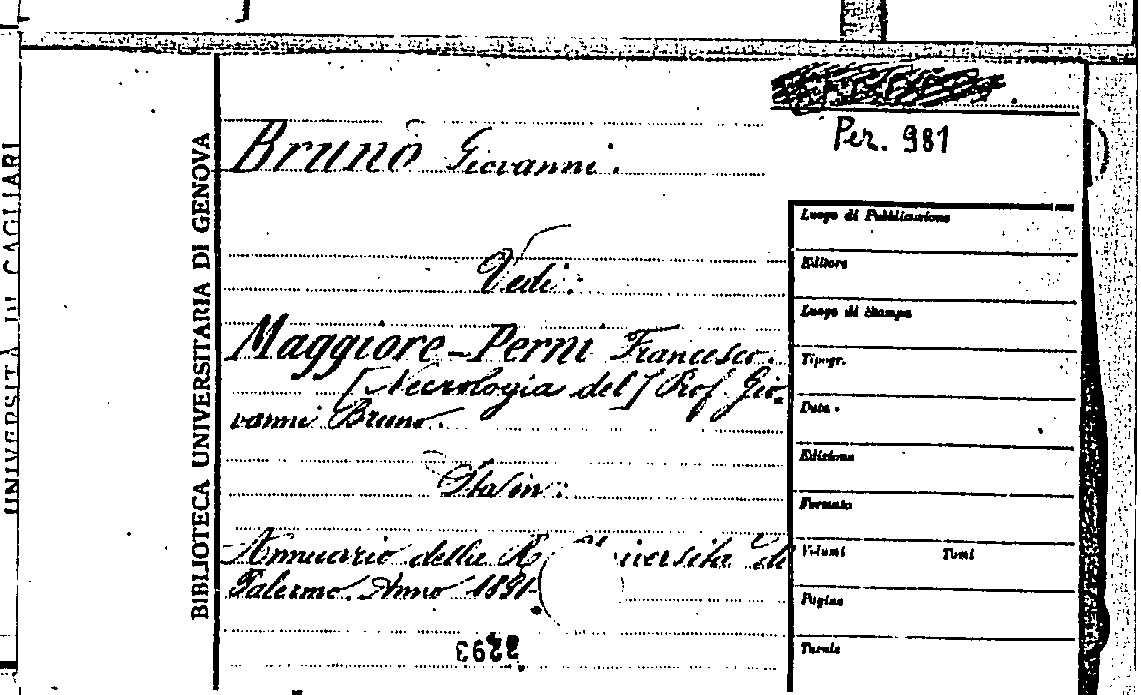 UNIVERSITÀ DI CAGLIARI
BIBLIOTECA UNIVERSITARIA DI GENOVA
Per. 981
Bruno Giovanni.
Vedi:
Maggiore-Perni Francesco.
[Necrologia del] Prof. Gio-
vanni Bruno.
Sta in:
Annuario della R. Università di
Palermo. Anno 1891-
Luogo di Pubblicazione
Editore
Luogo di Stampa
Tipogr.
Data
Edizione
Formato
Volumi Tomi
Pagine
Tavole